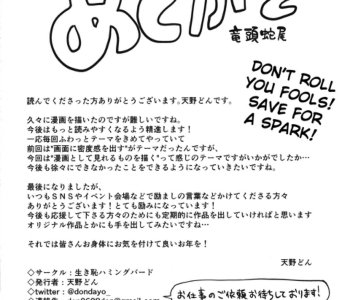 あとがき
竜頭蛇尾
DON'T ROLL
YOU FOOLS!
SAVE FOR
A SPARK!
読んでくださった方ありがとうございます。天野どんです。
久々に漫画を描いたのですが難しいですね。
今後はもっと読みやすくなるよう精進します！
一応毎回ふわっとテーマをきめてやっていて
前回は"画面に密度感を出す"がテーマだったんですが、
今回は"漫画として見れるものを描く"って感じのテーマですがいかがでしたか…
今後も徐々にできなかったことをできるようになっていきたいですね。
最後になりましたが、
いつもSNSやイベント会場などで励ましの言葉などかけてくださる方々
ありがとうございます！とても励みになっています！
今後も応援して下さる方々のためにも定期的に作品を出していければと思います
オリジナル作品とかにも手を出してみたいですね。
それでは皆さんお身体にお気を付けて良いお年を！
天野どん
◇サークル：生き恥ハミングバード
◇発行者：天野どん
◇twitter：@dondayo_
お仕事のご依頼お待ちしております!